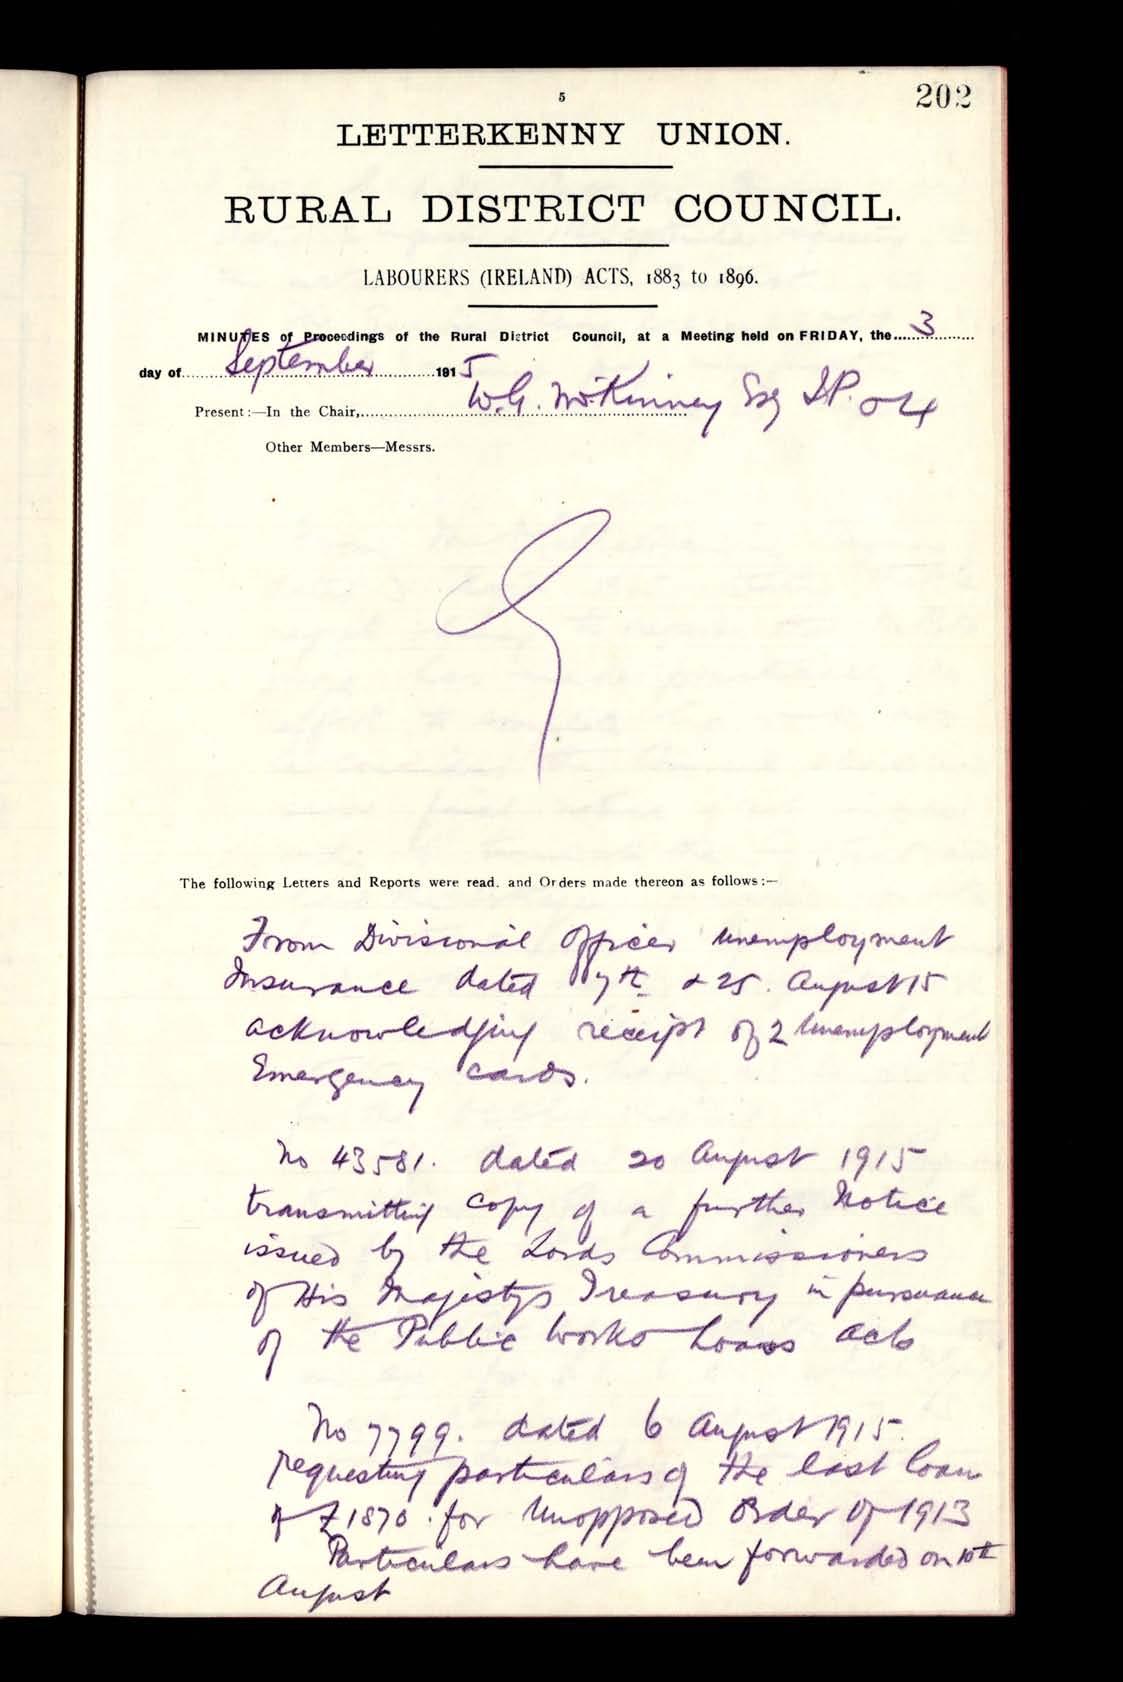 5
202
LETTERKENNY UNION.
RURAL DISTRICT COUNCIL.
LABOURERS (IRELAND) ACTS, 1883 to 1896.
MINUTES of Proceedings of the Rural District Council, at a Meeting held on FRIDAY, the 3
day of September 1915
Present:—In the Chair, W.G. McKinney Esq J.P.
Other Members—Messrs.
The following Letters and Reports were read, and Orders made thereon as follows:—
From Divisional Officer Unemployment
Insurance dated 7th & 25. August 15
acknowledging receipt of 2 Unemployment
Emergency cards.
No 43581. dated 20 August 1915
transmitting copy of a further Notice
issued by the Lords Commissioners
of His Majestys Treasury in pursuance
of the Public Works Loans Acts
No 7799. dated 6 August 1915.
requesting particulars of the last loan
of £1870 for Unopposed Order of 1913
Particulars have been forwarded on 10th
August